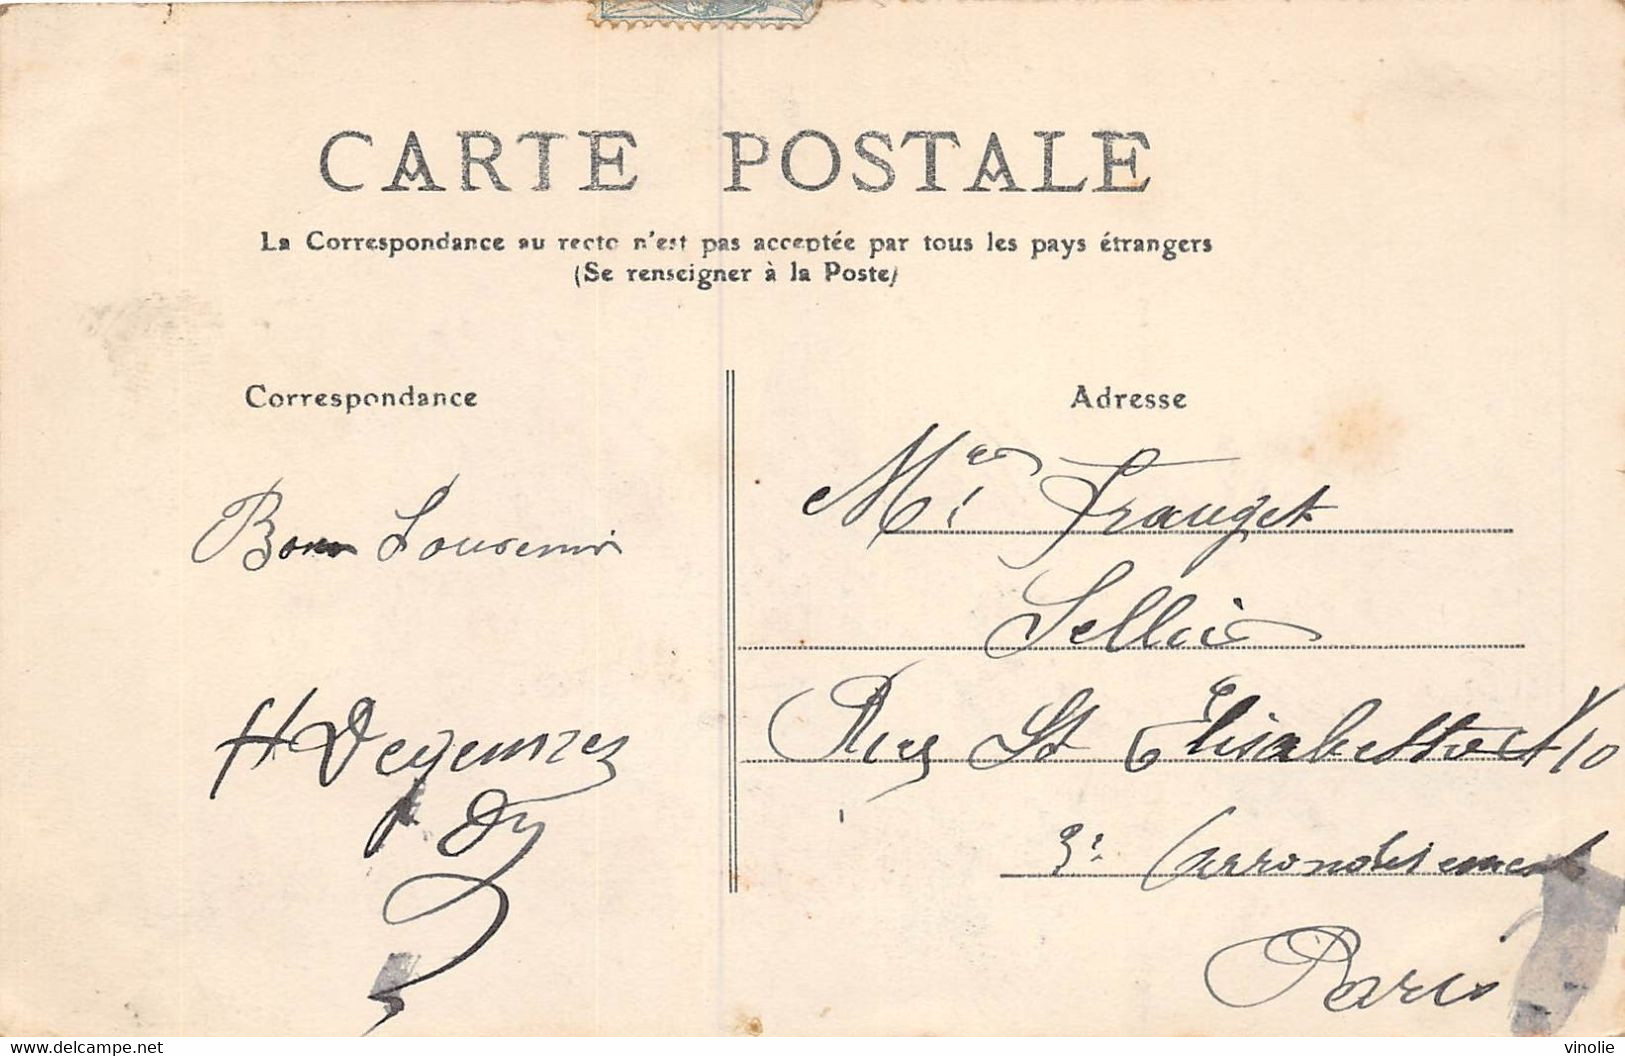 CARTE POSTALE
La Correspondance au recto n'est pas acceptée par tous les pays étrangers
(Se renseigner à la Poste)
Correspondance
Bon Souvenir
Adresse
Frauget
Sellier
Rue St Elisabeth 10
3e arrondissement
Paris
www.delcampe.net
vinolie